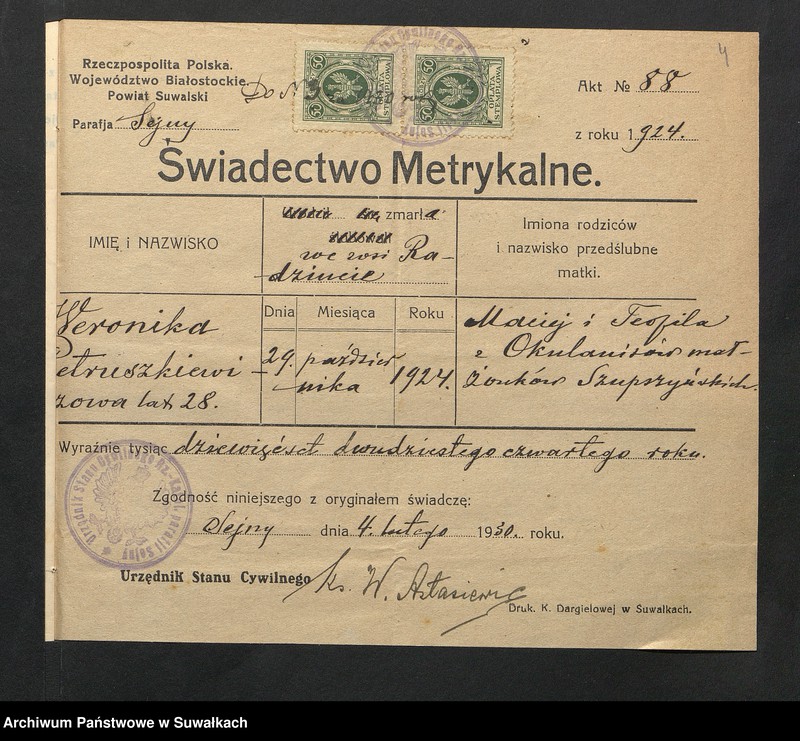 4
Rzeczpospolita Polska.
Województwo Białostockie
Powiat Suwalski
Parafja Sejny
Do N
50 OPŁATA STEMPLOWA 50
50 OPŁATA STEMPLOWA 50
Akt № 88
z roku 1924.
Świadectwo Metrykalne.
IMIĘ i NAZWISKO
zmarła
we wsi Ra-
dziucie
Imiona rodziców
i nazwisko przedślubne
matki.
Dnia Miesiąca Roku
Weronika
Petruszkiewi-
czowa lat 28.
29. paździer
nika 1924.
Maciej i Teofila
z Okulanisów mał-
żonków Szupszyńskich.
Wyraźnie tysiąc dziewięćset dwudziestego czwartego roku.
Zgodność niniejszego z oryginałem świadczę:
Sejny dnia 4. lutego 1930. roku.
Urzędnik Stanu Cywilnego ks. W. Astasiewicz
Urzędnik Stanu Cywilnego Rz.-Kat. parafji Sejny
Druk. K. Dargielowej w Suwałkach.
Archiwum Państwowe w Suwałkach